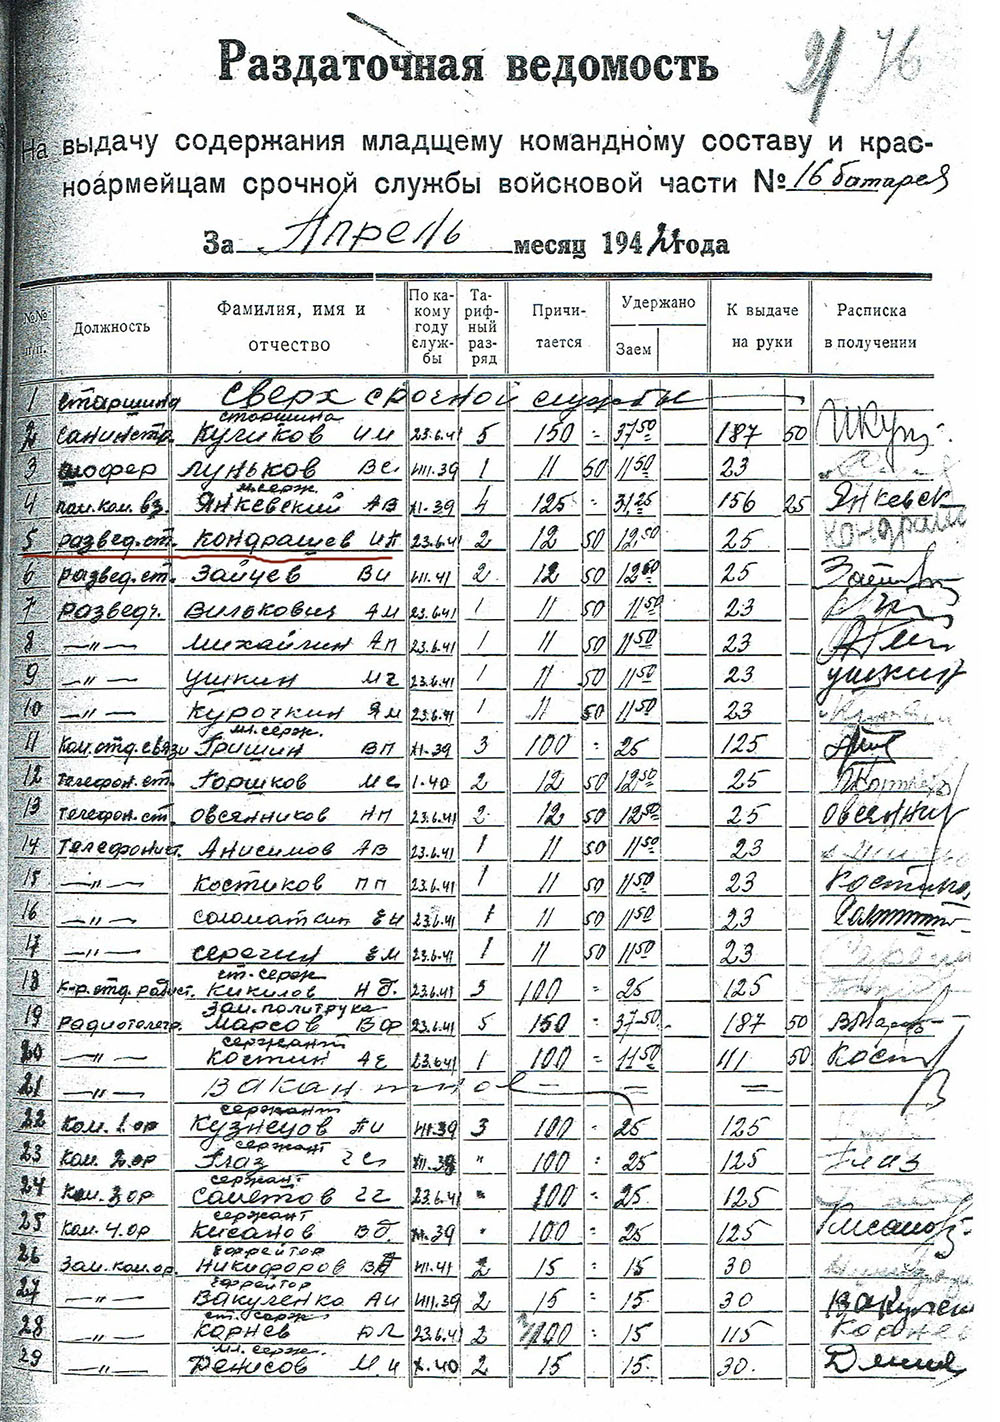 91 76
Раздаточная ведомость
На выдачу содержания младшему командному составу и крас-
ноармейцам срочной службы войсковой части № 16 батарея
За Апрель месяц 1942 года
№№ п/п. Должность Фамилия, имя и отчество По какому году службы Тарифный разряд Причитается Удержано Заем К выдаче на руки Расписка в получении
1 старшина сверх срочной службы
старшина
2 санинстр. Кучиков И И 23.6.41 5 150 = 37 50 187 50
3 шофер Луньков В С VIII.39 1 11 50 11 50 23
м.серж.
4 пом.ком.вз. Янкевский А В XI.39 4 125 = 31 25 156 25 Янкевск
5 развед.ст. Кондрашев И 23.6.41 2 12 50 12 50 25 Кондраш
6 развед.ст. Зайцев В И VIII.41 2 12 50 12 50 25
7 разведч. Вилькович А М 23.6.41 1 11 50 11 50 23
8 —"— Михайчин А П 23.6.41 1 11 50 11 50 23
9 —"— Ушкин М Г 23.6.41 1 11 50 11 50 23 Ушкин
10 —"— Курочкин Я М 23.6.41 1 11 50 11 50 23
мл. серж.
11 Ком.отд.связи Гришин В П XI.39 3 100 = 25 125
12 Телефон.ст. Горшков М С 1.40 2 12 50 12 50 25
13 Телефон.ст. Овсянников Н П 23.6.41 2 12 50 12 50 25 Овсянник
14 Телефонист. Анисимов А В 23.6.41 1 11 50 11 50 23
15 —"— Костиков П П 23.6.41 1 11 50 11 50 23
16 —"— Соломаткин Е И 23.6.41 1 11 50 11 50 23
17 —"— Серегин Е М 23.6.41 1 11 50 11 50 23
ст. серж
18 к-р.отд.радист. Кикилов Н 23.6.41 3 100 = 25 125
зам. политрука
19 Радиотелегр. Марсов В Ф 23.6.41 5 150 = 37-50 187 50
сержант
20 —"— Костин А Е 23.6.41 1 100 = 11 50 111 50 Кост
21 —"— Вакантное — = =
сержант
22 Ком. 1 ор Кузнецов VIII.39 3 100 = 25 125
сержант
23 Ком. 2 ор Глаз 100 = 25 125 Глаз
сержант
24 Ком. 3 ор Саметов Г Г 23.6.41 " 100 = 25 125
сержант
25 Ком. 4 ор Кисанов В 39 " 100 = 25 125 Кисанов
ефрейтор
26 Зам.ком.ор. Никифоров В VIII.41 2 15 = 15 30
ефрейтор
27 —"— Вакуленко А И VIII.39 2 15 = 15 30 Вакулен
ст. серж
28 —"— Корнев 23.6.41 2 100 = 15 115 Корнев
мл. серж.
29 —"— Денисов М И X.40 2 15 15 30